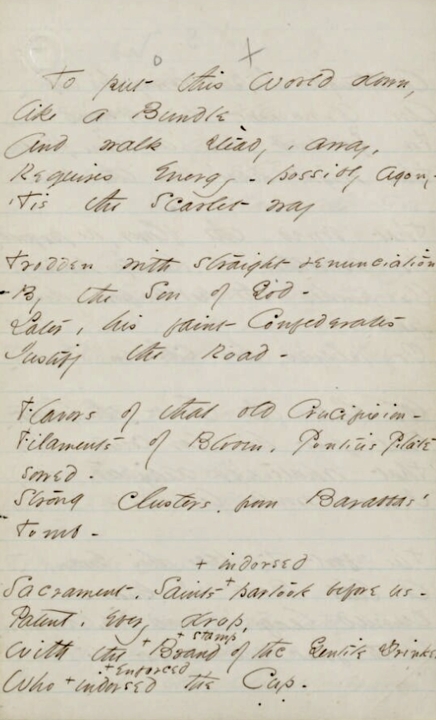 To put this World down,
like a Bundle
And walk steady, away,
Requires Energy - possibly Agony -
'Tis the Scarlet way
Trodden with straight renunciation
By the Son of God -
Later, his faint Confederates
Justify the Road -
Flavors of that old Crucifixion -
Filaments of Bloom, Pontius Pilate
sowed -
Strong Clusters, from Barabbas'
Tomb -
+ indorsed
Sacrament, Saints + partook before us -
Patent, every drop,
+ + stamp
With the Brand of the Gentile Drinker
+ enforced
Who + indorsed the Cup -